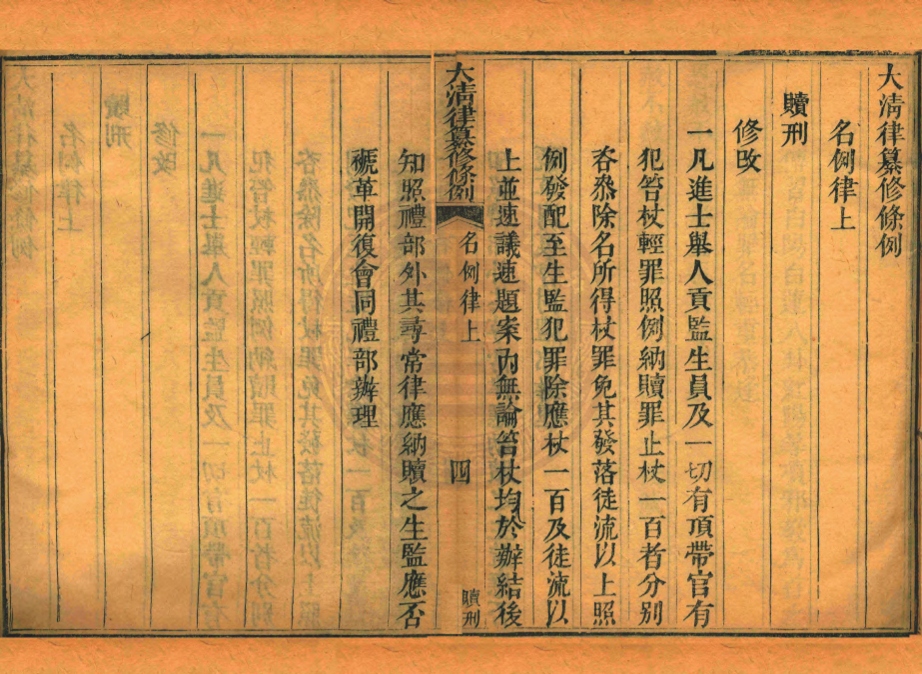 大清律纂修條例
名例律上
贖刑
修改
一凡進士舉人貢監生員及一切有頂帶官有
犯笞杖輕罪照例納贖罪止杖一百者分別
咨叅除名所得杖罪免其發落徒流以上照
例發配至生監犯罪除應杖一百及徒流以
上並速議速題案內無論笞杖均於辦結後
大清律纂修條例
名例律上
四
贖刑
知照禮部外其尋常律應納贖之生監應否
褫革開復會同禮部辦理